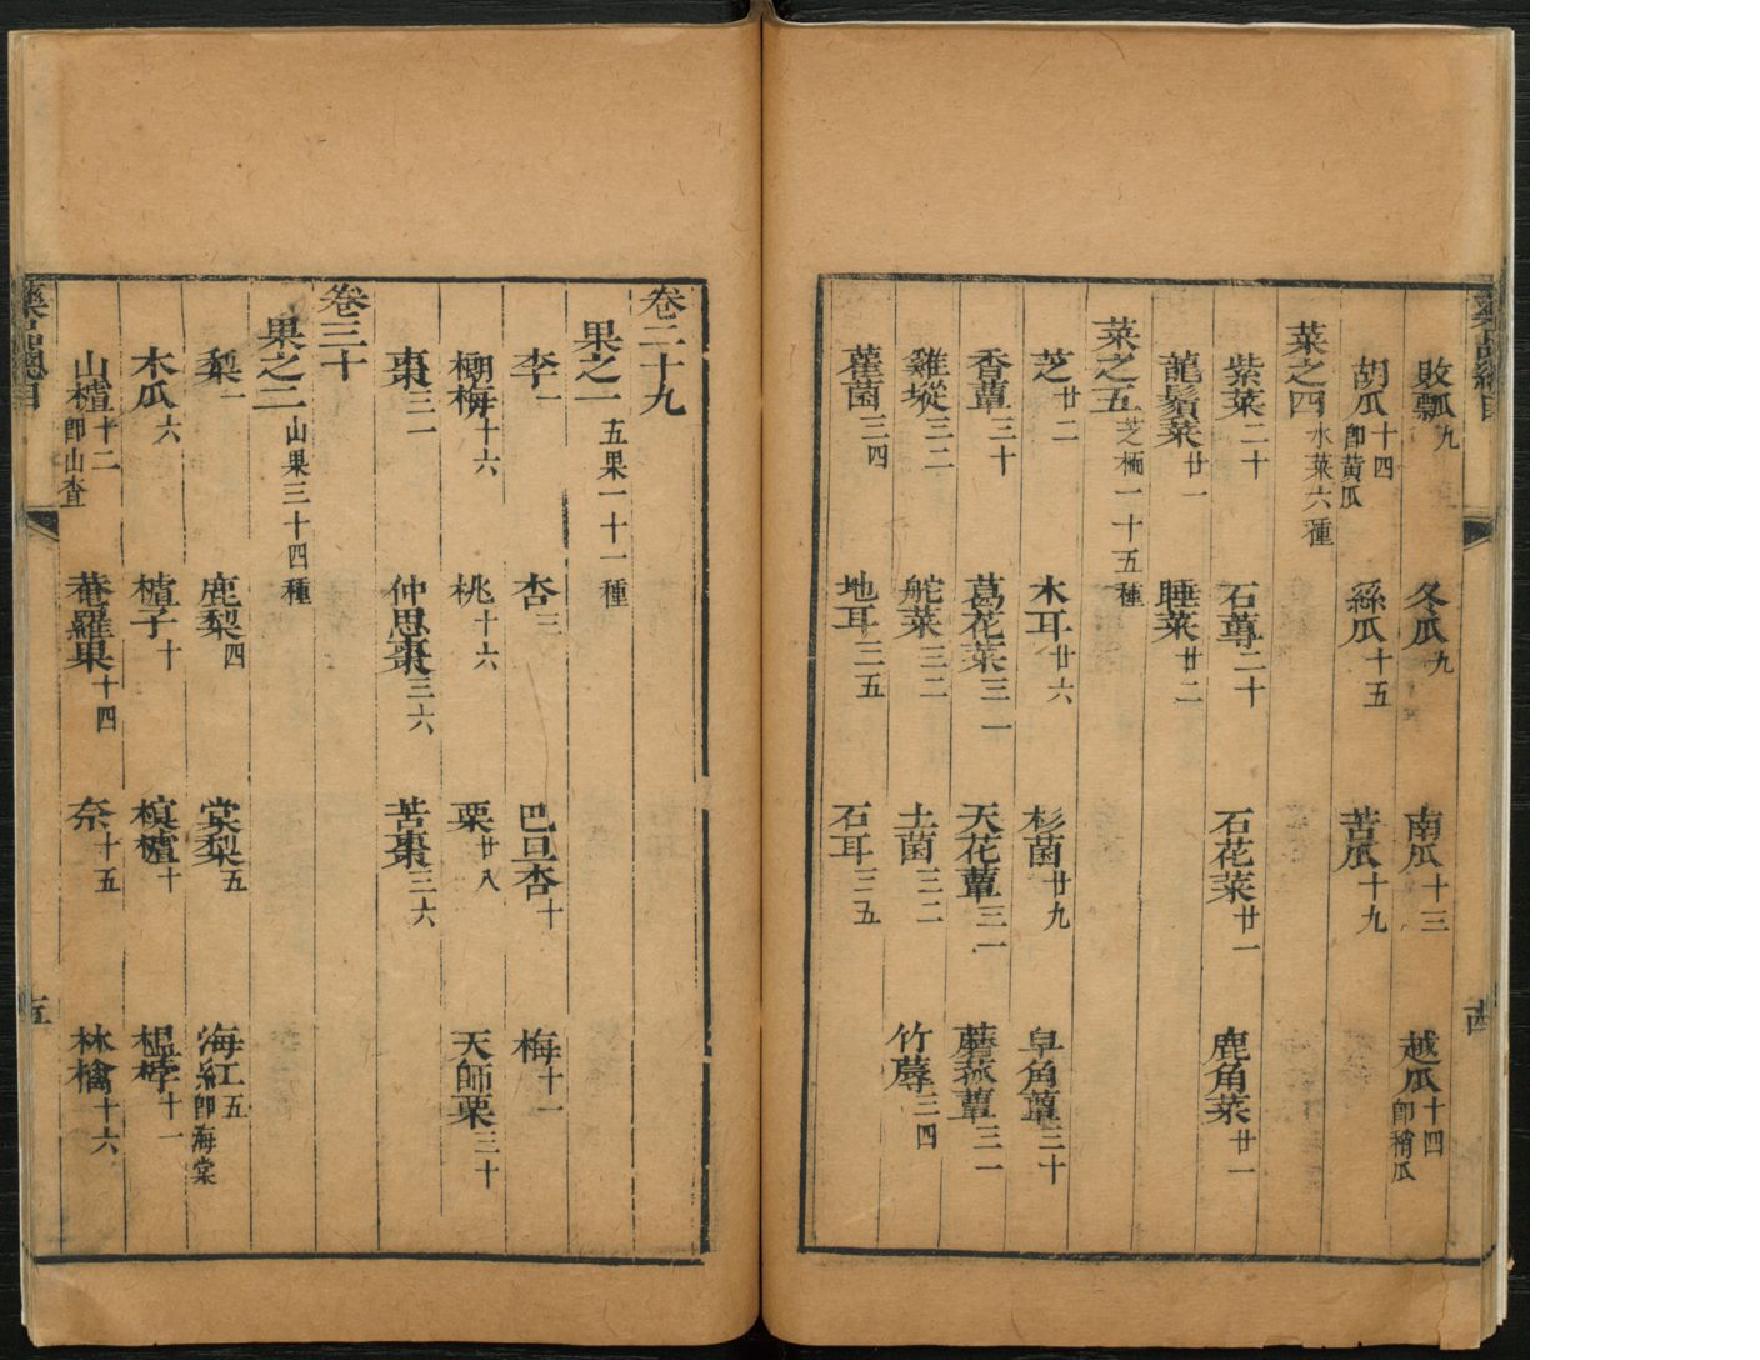 敗瓢九 冬瓜九 南瓜十三 越瓜十四即稍瓜
胡瓜十四即黄瓜 絲瓜十五 苦瓜十九
菜之四水菜六種
紫菜二十 石蓴二十 石花菜廿一 鹿角菜廿一
龍鬚菜廿一 睡菜廿二
菜之五芝栭一十五種
芝廿二 木耳廿六 杉菌廿九 皁角蕈三十
香蕈三十 葛花菜三一 天花蕈三一 蘑菰蕈三一
雞㙡三二 舵菜三二 土菌三二 竹蓐三四
雚菌三四 地耳三五 石耳三五
卷二十九
果之一五果一十一種
李一 杏三 巴旦杏十 梅十一
榔梅十六 桃十六 栗廿八 天師栗三十
棗三一 仲思棗三六 苦棗三六
卷三十
果之二山果三十四種
梨一 鹿梨四 棠梨五 海紅五即海棠
木瓜六 樝子十 榠樝十 榲桲十一
山樝十二即山査 菴羅果十四 柰十五 林檎十六